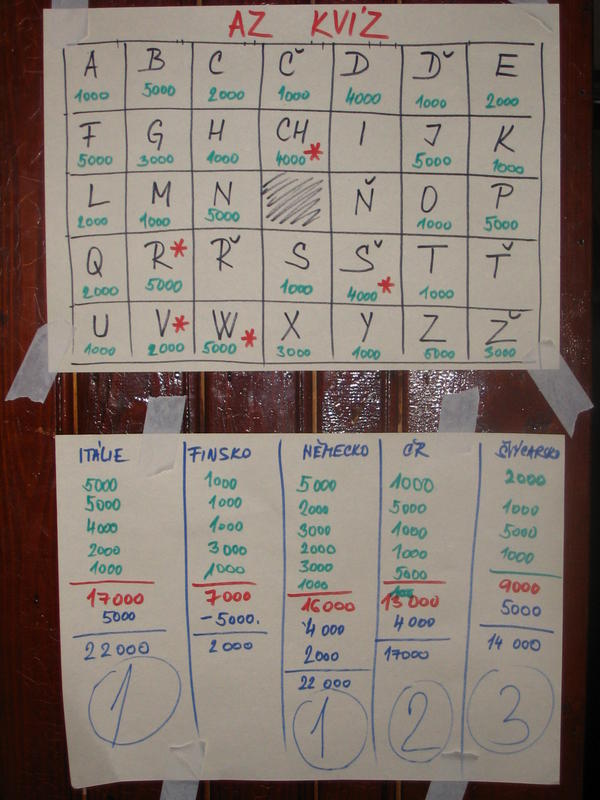 AZ KVÍZ
A B C Č D Ď E
1000 5000 2000 1000 4000 1000 2000
F G H CH I J K
5000 3000 1000 4000* 5000 1000
L M N Ň O P
2000 1000 5000 1000 5000
Q R* Ř S Š T Ť
2000 5000 1000 4000* 1000
U V* W* X Y Z Ž
1000 2000 5000 3000 1000 5000 3000
ITÁLIE FINSKO NĚMECKO ČŘ ŠVÝCARSKO
5000 1000 5000 1000 2000
5000 1000 2000 5000 1000
4000 1000 3000 1000 5000
2000 3000 2000 1000 1000
1000 1000 3000 5000 9000
17000 7000 1000 13000 5000
5000 -5000. 16000 4000 14 000
22000 2000 4 000 17000 3
1 2000 2
22 000
1